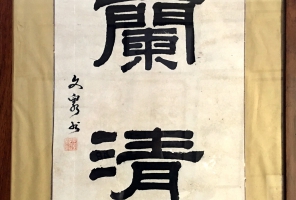 蘭清
文泉書